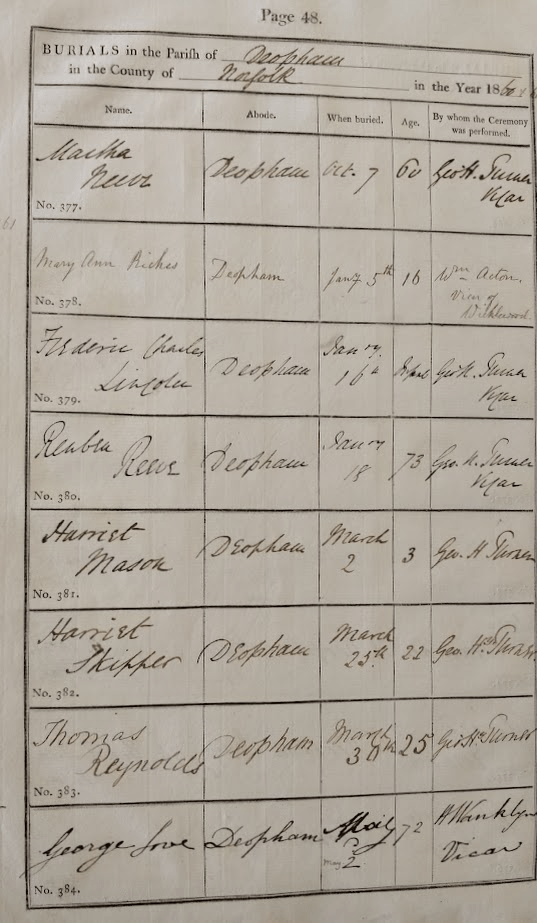 Page 48.
BURIALS in the Parish of Deopham
in the County of Norfolk in the Year 1860
Name. Abode. When buried. Age. By whom the Ceremony was performed.
Martha
Neeve Deopham Oct. 7 60 Geo H. Turner
Vicar
No. 377.
61
Mary Ann Riches Deopham Jany 5th 16 Wm Acton
Vicar of
Wicklewood
No. 378.
Frederic Charles
Lincoln Deopham Jany
16th Infant Geo H. Turner
Vicar
No. 379.
Reuben
Reeve Deopham Jany
18 73 Geo. H. Turner
Vicar
No. 380.
Harriet
Mason Deopham March
2 3 Geo. H Turner
No. 381.
Harriet
Skipper Deopham March
25th 22 Geo. Turner
No. 382.
Thomas
Reynolds Deopham March
30th 25 Geo H Turner
No. 383.
George Love Deopham May
2 72 H Wanklyn
Vicar
May
No. 384.